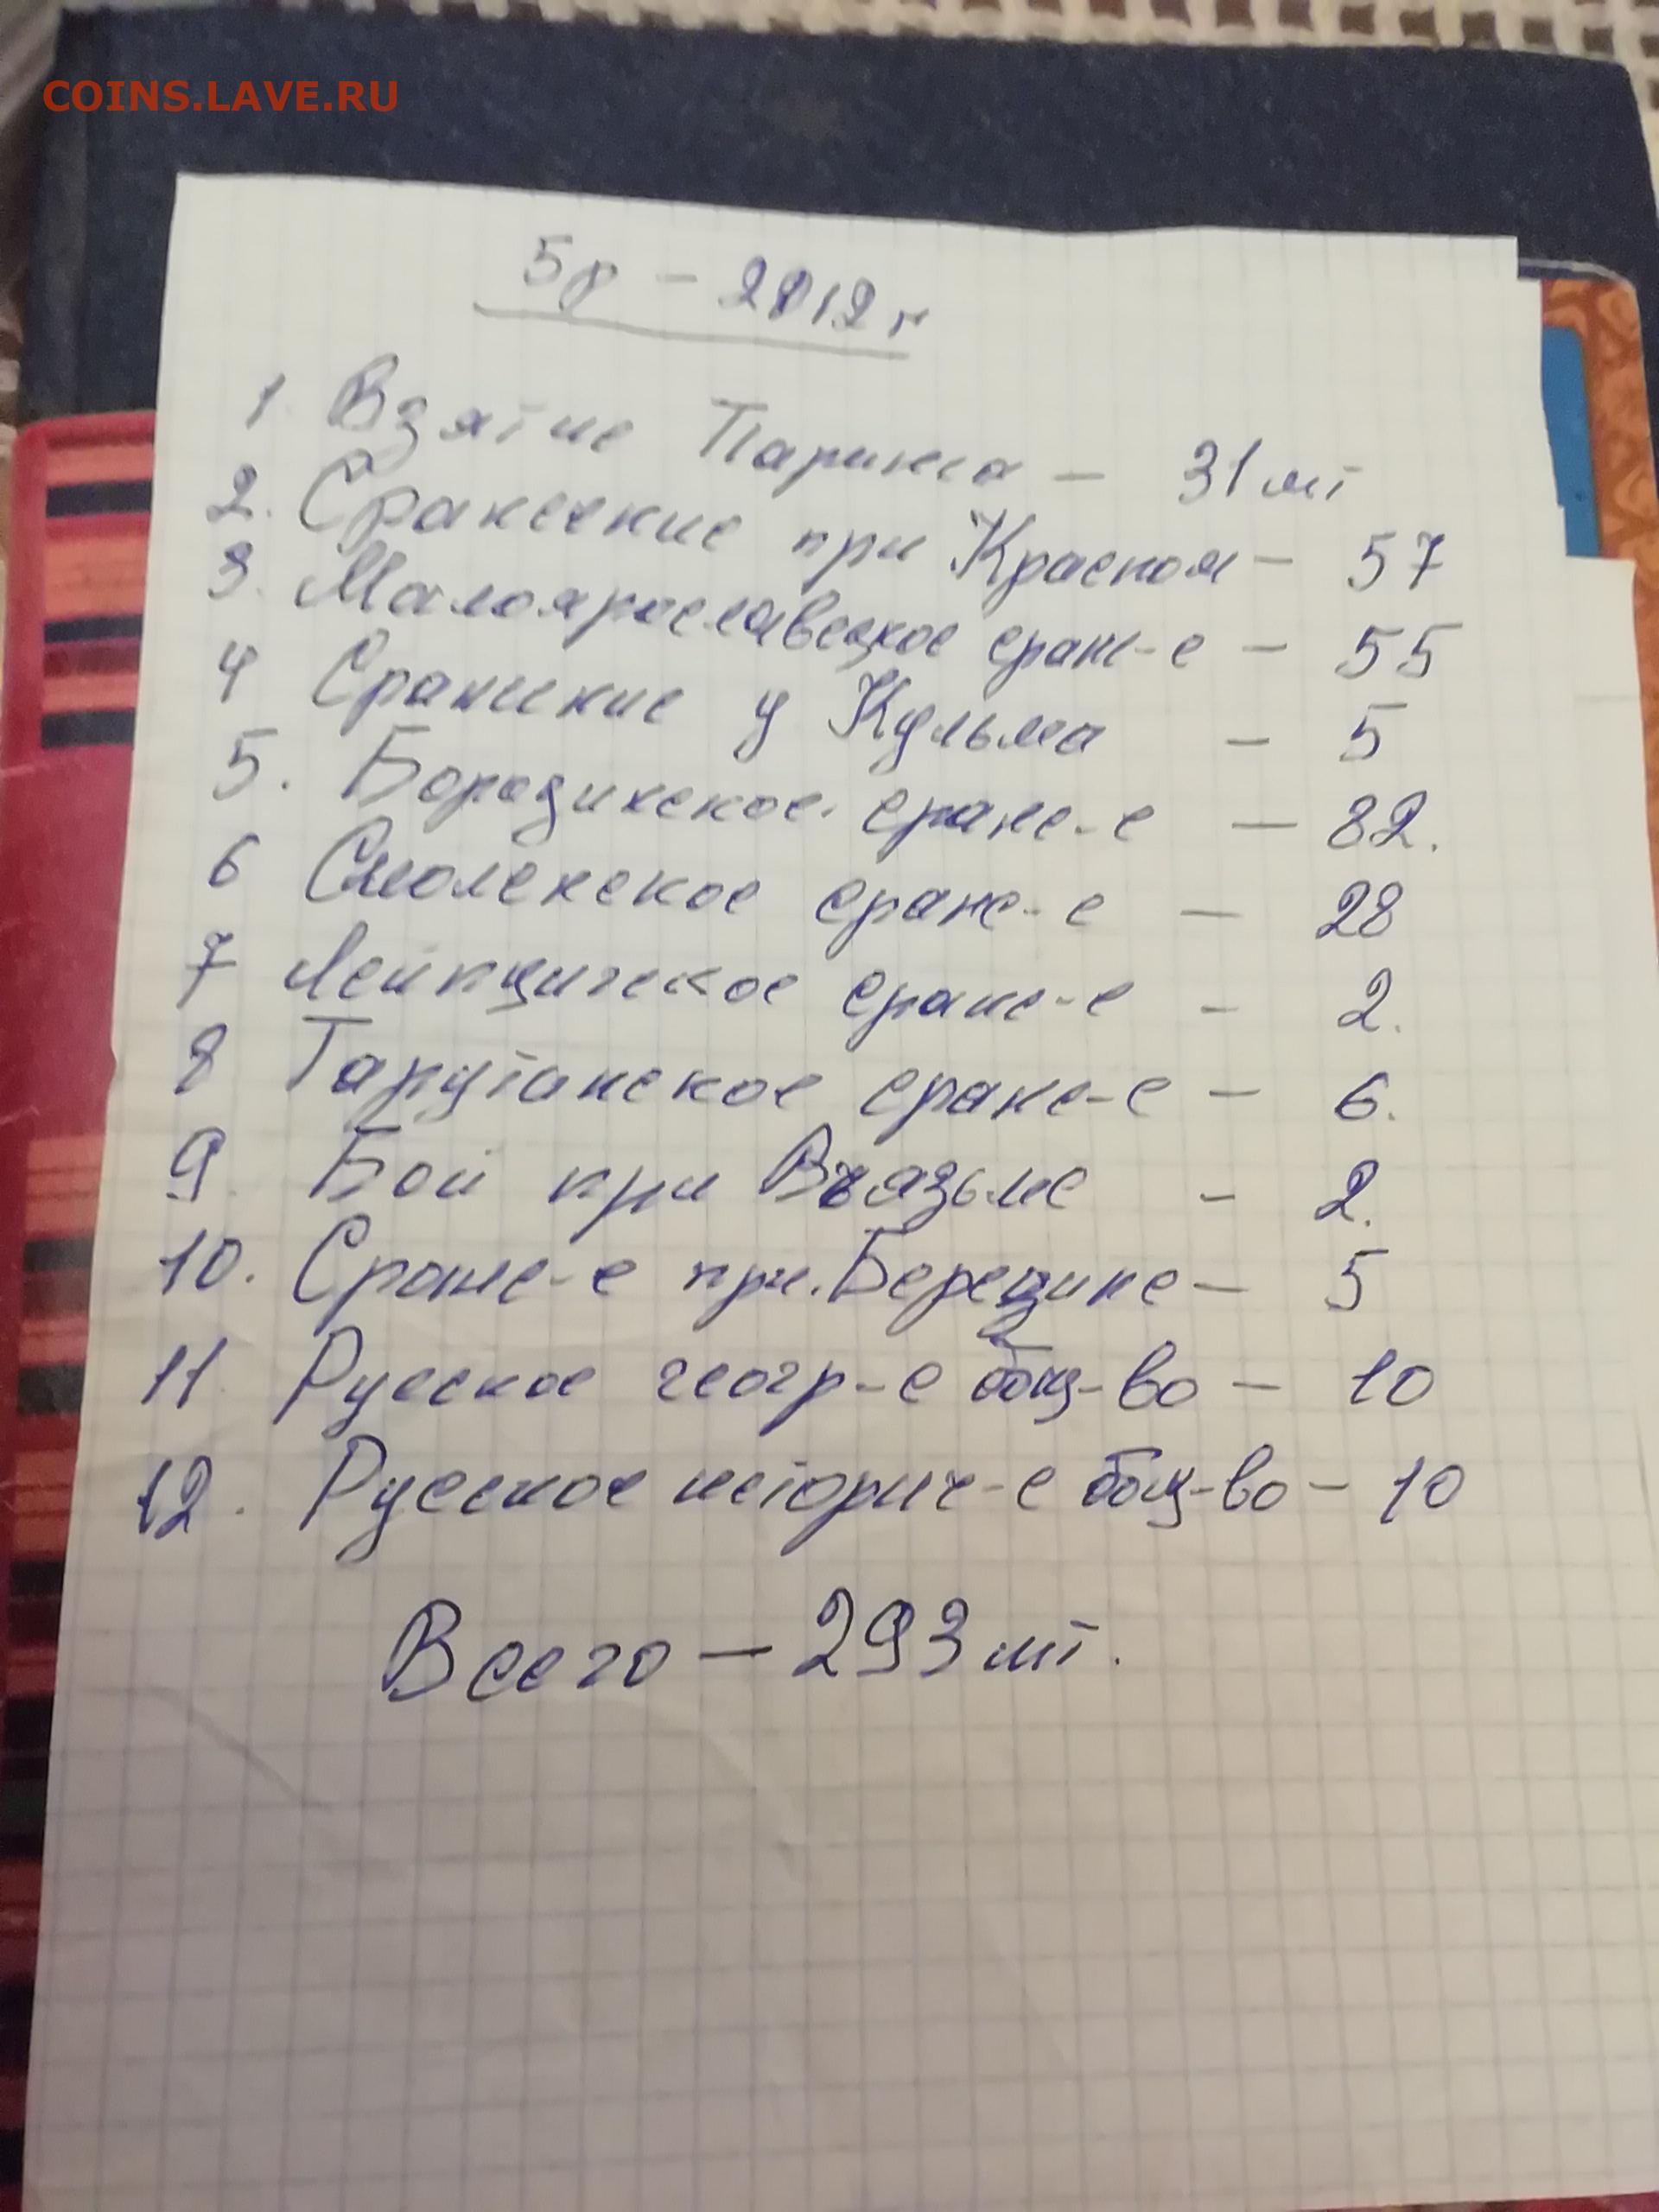 COINS.LAVE.RU
5р – 2012г
1. Взятие Парижа – 31 шт
2. Сражение при Красном – 57
3. Малоярославецкое сраж-е – 55
4 Сражение у Кульма – 5
5. Бородинское сраж-е – 82.
6 Смоленское сраж-е – 28
7 Лейпцигское сраж-е – 2.
8 Тарутинское сраж-е – 6.
9. Бой при Вязьме – 2.
10. Сраже-е при Березине – 5
11. Русское геогр-е общ-во – 10
12. Русское историч-е общ-во – 10
Всего – 293 шт.